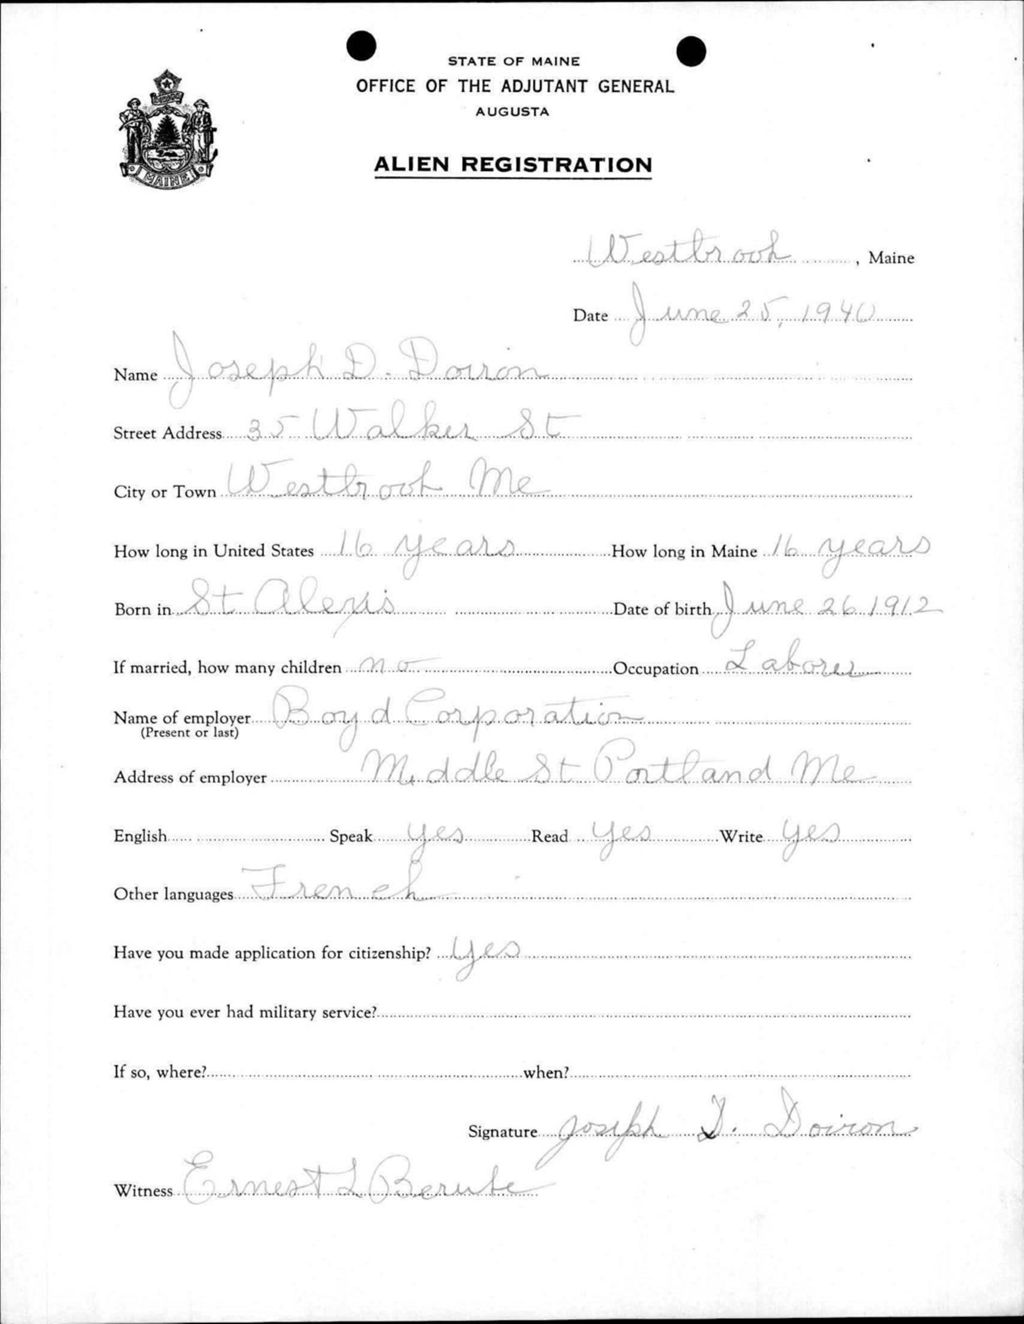 STATE OF MAINE
OFFICE OF THE ADJUTANT GENERAL
AUGUSTA
MAINE
ALIEN REGISTRATION
Westbrook, Maine
Date June 25, 1940
Name Joseph D. Doiron
Street Address 35 Walker St
City or Town Westbrook Me
How long in United States 16 years How long in Maine 16 years
Born in St Alexis Date of birth June 26 1912
If married, how many children no Occupation Laborer
Name of employer Boyd Corporation
(Present or last)
Address of employer Middle St Portland Me
English Speak yes Read yes Write yes
Other languages French
Have you made application for citizenship? yes
Have you ever had military service?
If so, where? when?
Signature Joseph D. Doiron
Witness Ernest L Berube